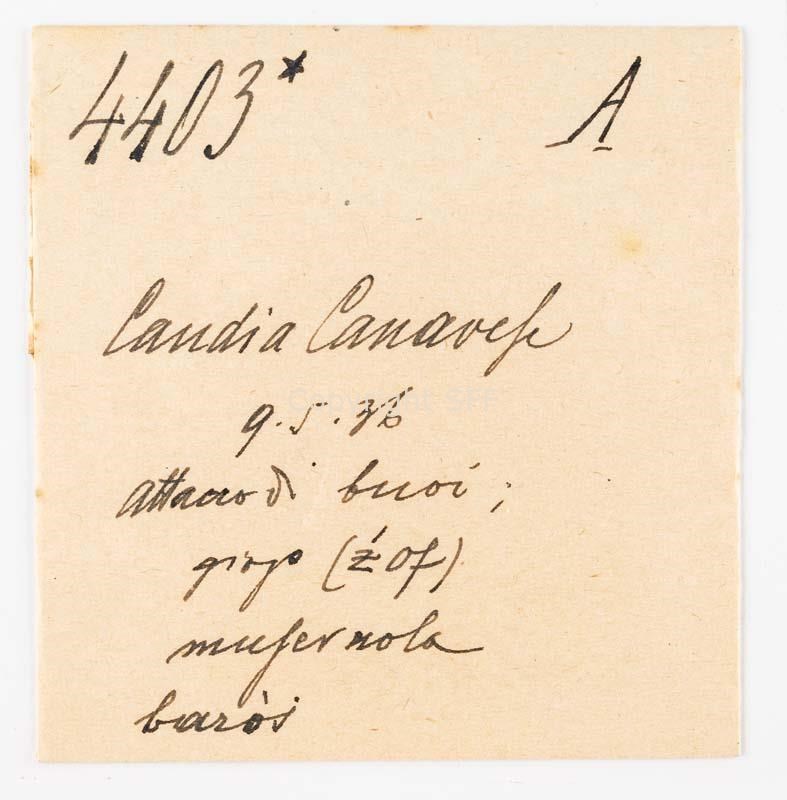 4403* A
Candia Canavese
9.5.36
attacco di buoi;
giogo (źof)
musernola
baròs